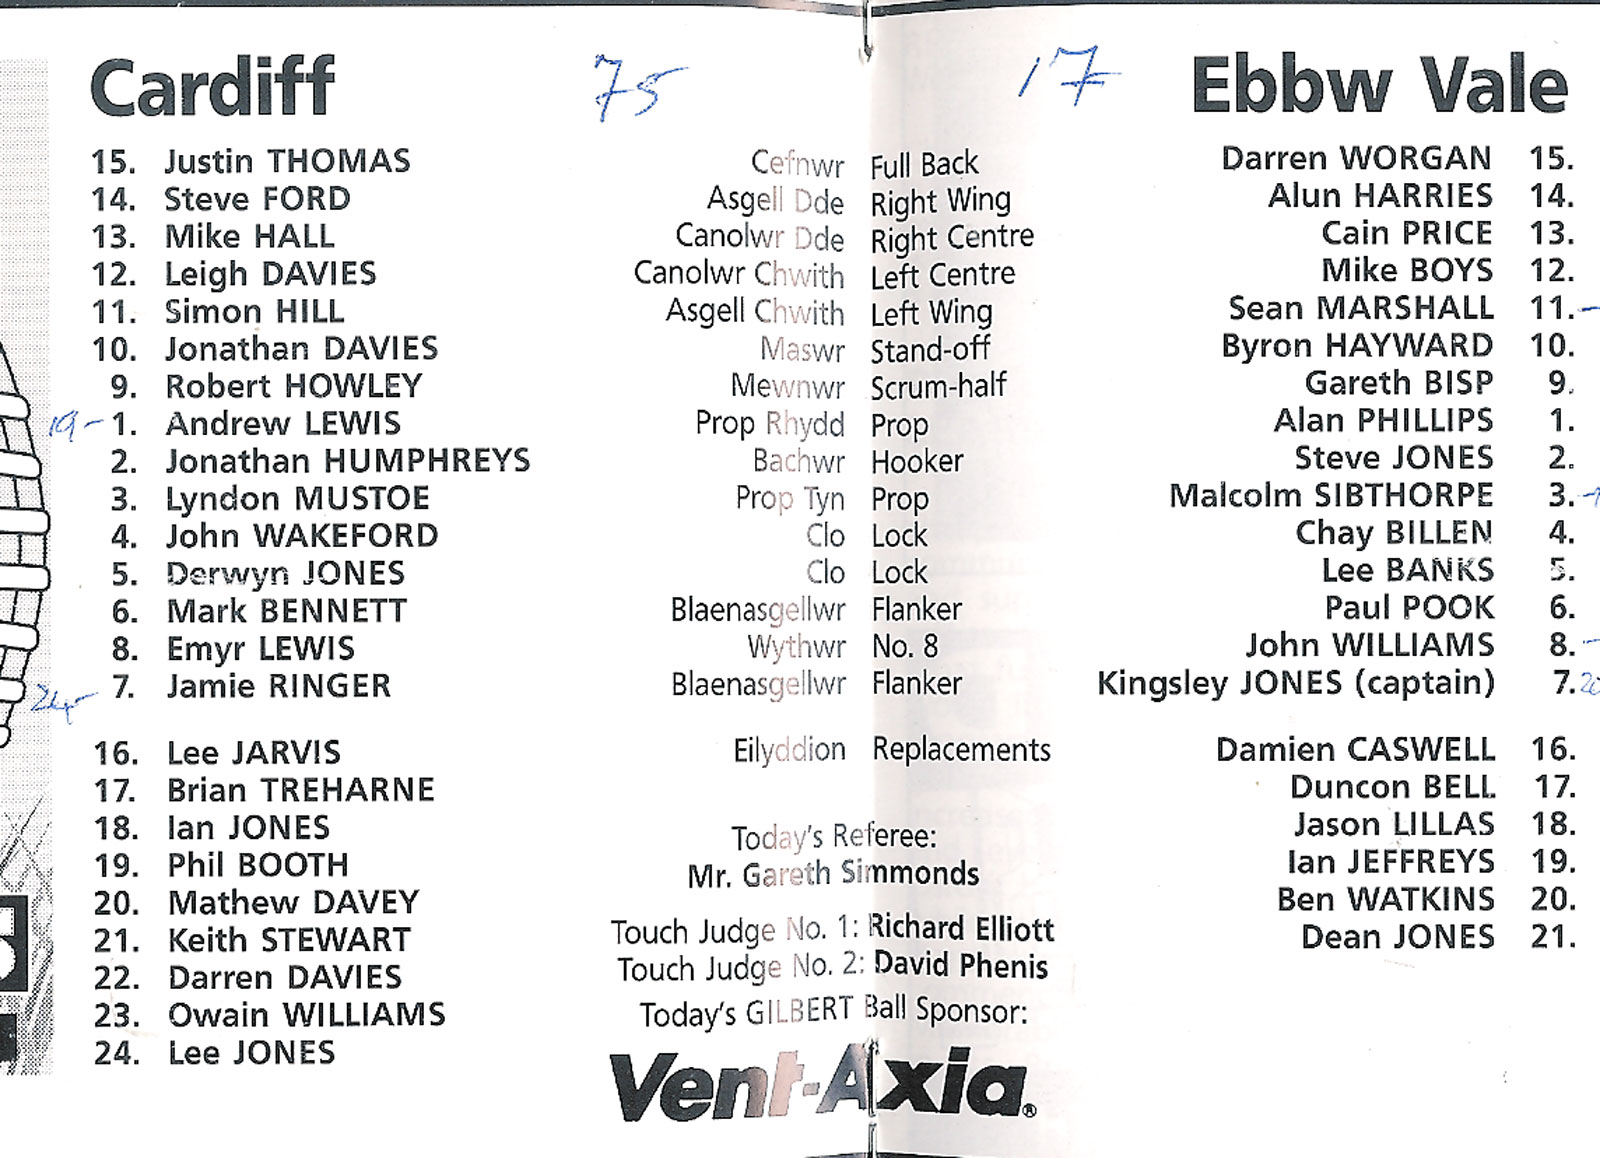 Cardiff 75 17 Ebbw Vale
15. Justin THOMAS Cefnwr Full Back Darren WORGAN 15.
14. Steve FORD Asgell Dde Right Wing Alun HARRIES 14.
13. Mike HALL Canolwr Dde Right Centre Cain PRICE 13.
12. Leigh DAVIES Canolwr Chwith Left Centre Mike BOYS 12.
11. Simon HILL Asgell Chwith Left Wing Sean MARSHALL 11. -
10. Jonathan DAVIES Maswr Stand-off Byron HAYWARD 10.
9. Robert HOWLEY Mewnwr Scrum-half Gareth BISP 9.
19 - 1. Andrew LEWIS Prop Rhydd Prop Alan PHILLIPS 1.
2. Jonathan HUMPHREYS Bachwr Hooker Steve JONES 2.
3. Lyndon MUSTOE Prop Tyn Prop Malcolm SIBTHORPE 3. -
4. John WAKEFORD Clo Lock Chay BILLEN 4.
5. Derwyn JONES Clo Lock Lee BANKS 5.
6. Mark BENNETT Blaenasgellwr Flanker Paul POOK 6.
8. Emyr LEWIS Wythwr No. 8 John WILLIAMS 8. -
24 - 7. Jamie RINGER Blaenasgellwr Flanker Kingsley JONES (captain) 7. 20
16. Lee JARVIS Eilyddion Replacements Damien CASWELL 16.
17. Brian TREHARNE Duncon BELL 17.
18. Ian JONES Today's Referee: Jason LILLAS 18.
19. Phil BOOTH Mr. Gareth Simmonds Ian JEFFREYS 19.
20. Mathew DAVEY Ben WATKINS 20.
21. Keith STEWART Touch Judge No. 1: Richard Elliott Dean JONES 21.
22. Darren DAVIES Touch Judge No. 2: David Phenis
23. Owain WILLIAMS Today's GILBERT Ball Sponsor:
24. Lee JONES
Vent-Axia®